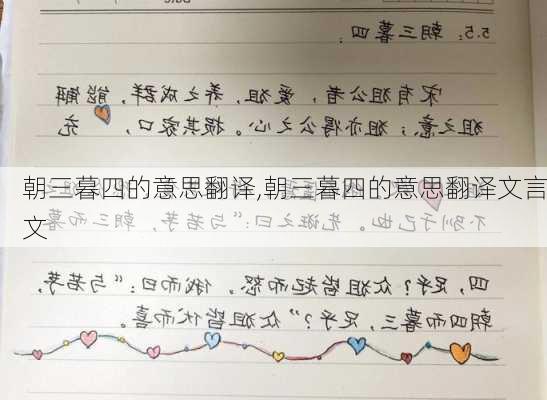 5.5：朝三暮四：
宋有狙公者，爱狙，养之成群，能解
狙之意；狙亦得公之心。损其家口，充
朝三暮四的意思翻译,朝三暮四的意思翻译文言
文
不驯于己也。先诳之曰：“与若芧，朝三而暮
四，足乎？众狙皆起而怒。俄而曰：“与若芧，
朝四而暮三，足乎？”众狙皆伏而喜。